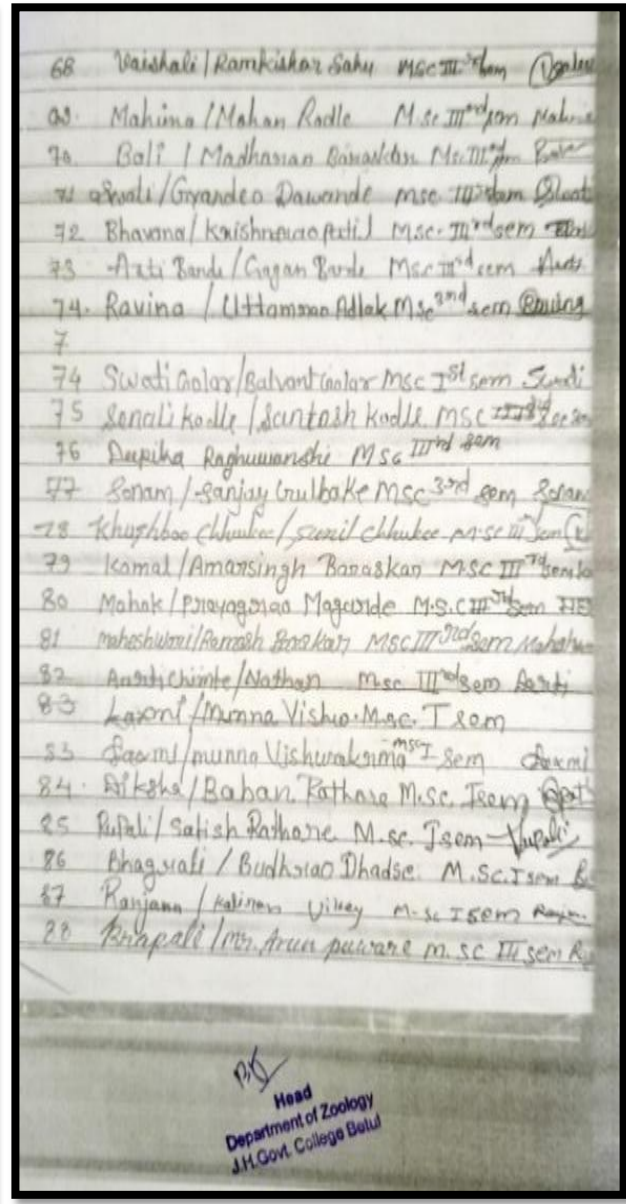 68 Vaishali / Ramkishar Sahu MSc III rd sem
69. Mahima / Mohan Radle M.sc IIIrd sem Mahi
70 Bali / Madhavan Banaskar Msc IIIrd sem
71 Swati / Gyandeo Dawande msc IIIrd sem Swati
72 Bhavana / Krishnarao Patil Msc. IIIrd sem
73 Arti Barde / Gagan Barde Msc IIIrd sem Arti
74. Ravina / Uttamrao Adlak Msc 3nd sem
7
74 Swati Golar / Balvant Golar Msc Ist sem Swati
75 Sonali kodle / Santosh kodle MSC
76 Deepika Raghuwanshi MSC IIIrd sem
77 Sonam / Sanjay Gulbake Msc 3rd sem Sonam
78 Khushboo Chhukee / Sunil Chhukee M.sc III sem
79 Komal / Amarsingh Banaskar MSC III rd sem ko
80 Mahak / Prayagrao Magarde M.S.C IIIrd sem मह
81 maheshwari / Ramesh MSC IIIrd sem Maheshw
82 Aarti chimte / Nathan m.sc IIIrd sem Aarti
83 Laxmi / Munna Vishw. M.sc. I sem
83 Laxmi / munna Vishwakarma msc I sem Laxmi
84. Diksha / Baban. Rathore M.sc. I sem
85 Rupali / Satish Rathore M.sc. I sem Rupali
86 Bhagrati / Budhrao Dhadse. M.Sc. I sem B
87 Ranjana / Uikey M.sc I sem Ranjn.
88 / Mr. Arun puware m. sc III sem R
Head
Department of Zoology
J.H.Govt. College Betul